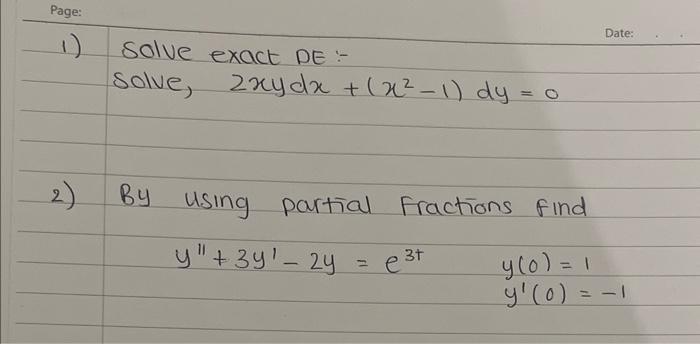 Page:
Date:
1) solve exact DE :-
solve, 2xydx + (x² - 1) dy = 0
2) By using partial Fractions find
y'' + 3y' - 2y = e³ᵗ y(0) = 1
y'(0) = -1